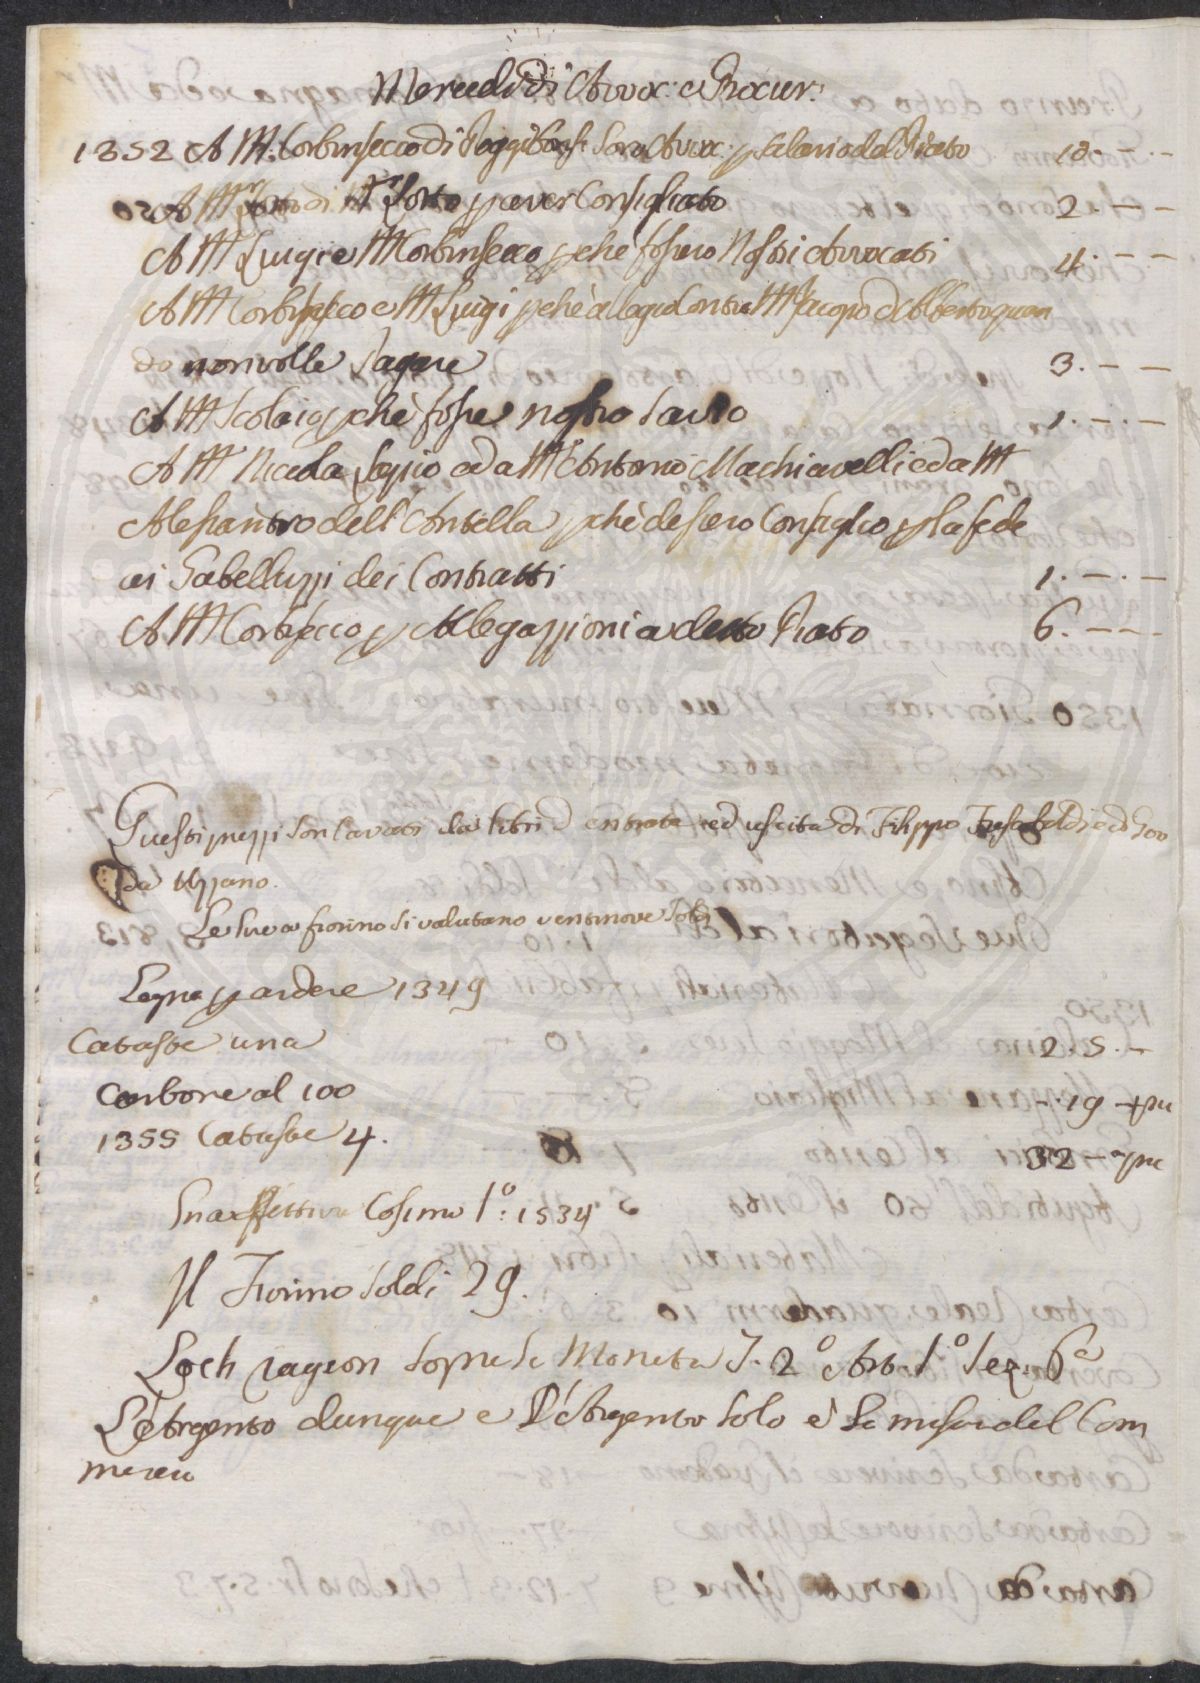 Mercedi di Avvoc: e Procur:
1352 A M. Corbinsecco di Poggibonsi loro Avvoc: p salario del Piato 12. - . -
A M di M p aver Consigliato 2. - -
A M Luigi e M Corbinsecco p che fossero Nostri Avvocati 4. - -
A M Corbinsecco e M Luigi p che allegò contra M Jacopo d'Alberto quan
do non volle Pagare 3. - -
A M Scolaio p che fosse nostro Savio 1. - . -
A M Niccola Lapio ed a M Antonio Machiavelli ed a M
Alessandro dell'Antella p che dessero Consiglio p la fede
ai Gabelluzzi dei Contratti 1. - . -
A M Corbisecco p Allegazzioni a detto Piato 6. - - -
Questi prezzi son cavati da libri d'entrata, ed uscita di Filippo Frescobaldi e di Gio
da Uzzano.
Le lire a fiorino si valutano ventinove soldi
Legna p ardere 1349
Catasta una 2. 5. -
Carbone al 100 -. 19 -
1355 Cataste 4. 32 -
Cosimo 1º: 1534
Il Fiorino soldi 29.
Loch ragion sopra la Moneta T. 2º Art. 1º Sez. 6ª
L'Argento dunque e L'Argento solo è la misura del Com
mercio